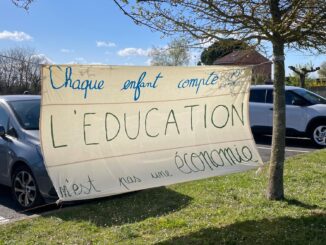 Chaque enfant compte
L'EDUCATION
n'est pas une économie